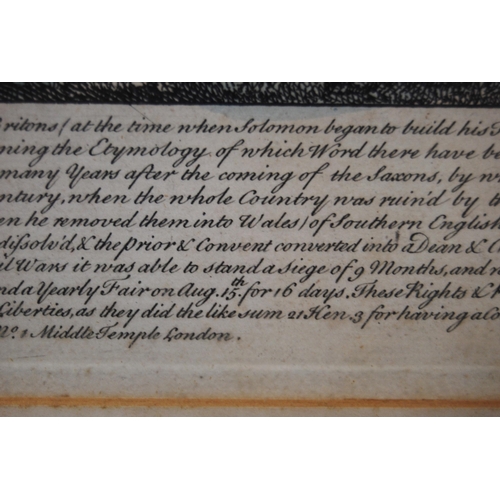 Britons (at the time when Solomon began to build his
ning the Etymology of which Word there have be
many Years after the coming of the Saxons, by w
ntury, when the whole Country was ruin'd by th
en he removed them into Wales) of Southern English
dissolv'd, & the Prior & Convent converted into a Dean &
il Wars it was able to stand a Siege of 9 Months, and n
nd a Yearly Fair on Aug. 15th. for 16 days. These Rights &
Liberties, as they did the like sum 21 Hen. 3 for having a Co
No. 1 Middle Temple London.